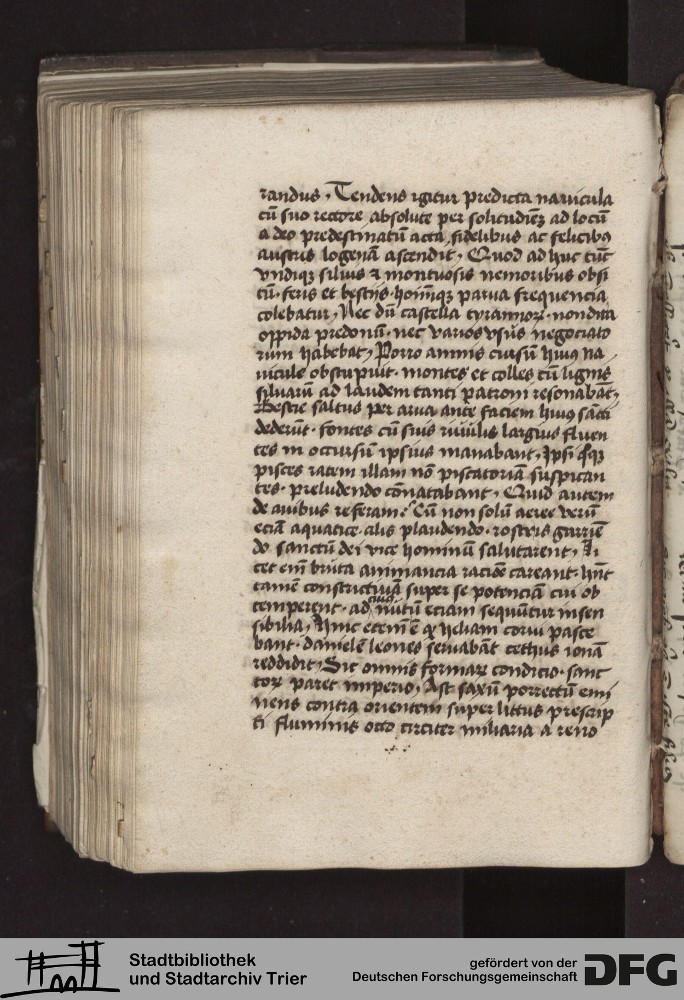 randus, Tendens igitur predicta nauicula
cū suo rectore absolute per solitudiēȝ ad locū
a deo predestinatū acta, fidelibus ac felicibꝯ
austris logenam ascendit, Quod ad huc tūc
vndiqȝ siluis ⁊ montuosis nemoribus obsi
tū· feris et bestijs· homīqȝ parua frequencia
colebatur, Nec dū castella tyrannoꝝ· nondum
oppida predonū· nec varios vsus negociato
rum habebat, Porro amnis cursū huiꝯ na
uicule obstupuit· montes et colles cū lignis
siluarū ad laudem tanti patroni resonabāt,
Bestie saltus per arua ante faciem huiꝯ sācti
dederūt· fontes cū suis riuulis largius fluen
tes in occursū ipsius manabant, Ipsi qͦqȝ
pisces ratem illam nō piscatoriā suspican
tes· preludendo cōnatabant, Quid autem
de auibus referam? Cū non solū aeree verū
eciā aquatice· alis plaudendo· rostris garriē
do sanctū dei vice hominū salutarent, Li
cet em̄ bruta animancia racōe careant· hūt
tamē super se potenciā cui ob
temperent· ad cuiꝯ nutū eciam sequūtur insen
sibilia, Hinc etem̄ ē ꝙ heliam corui pasce
bant· danielē leones seruabāt cethus ionā
reddidit, Sic omnis formaꝝ condicio· sanc
toꝝ paret imperio, Ast saxū porrectū emi
nens contra orientem super littus prescrip
ti fluminis octo circiter miliaria a reno
Stadtbibliothek
und Stadtarchiv Trier
gefördert von der
Deutschen Forschungsgemeinschaft
DFG